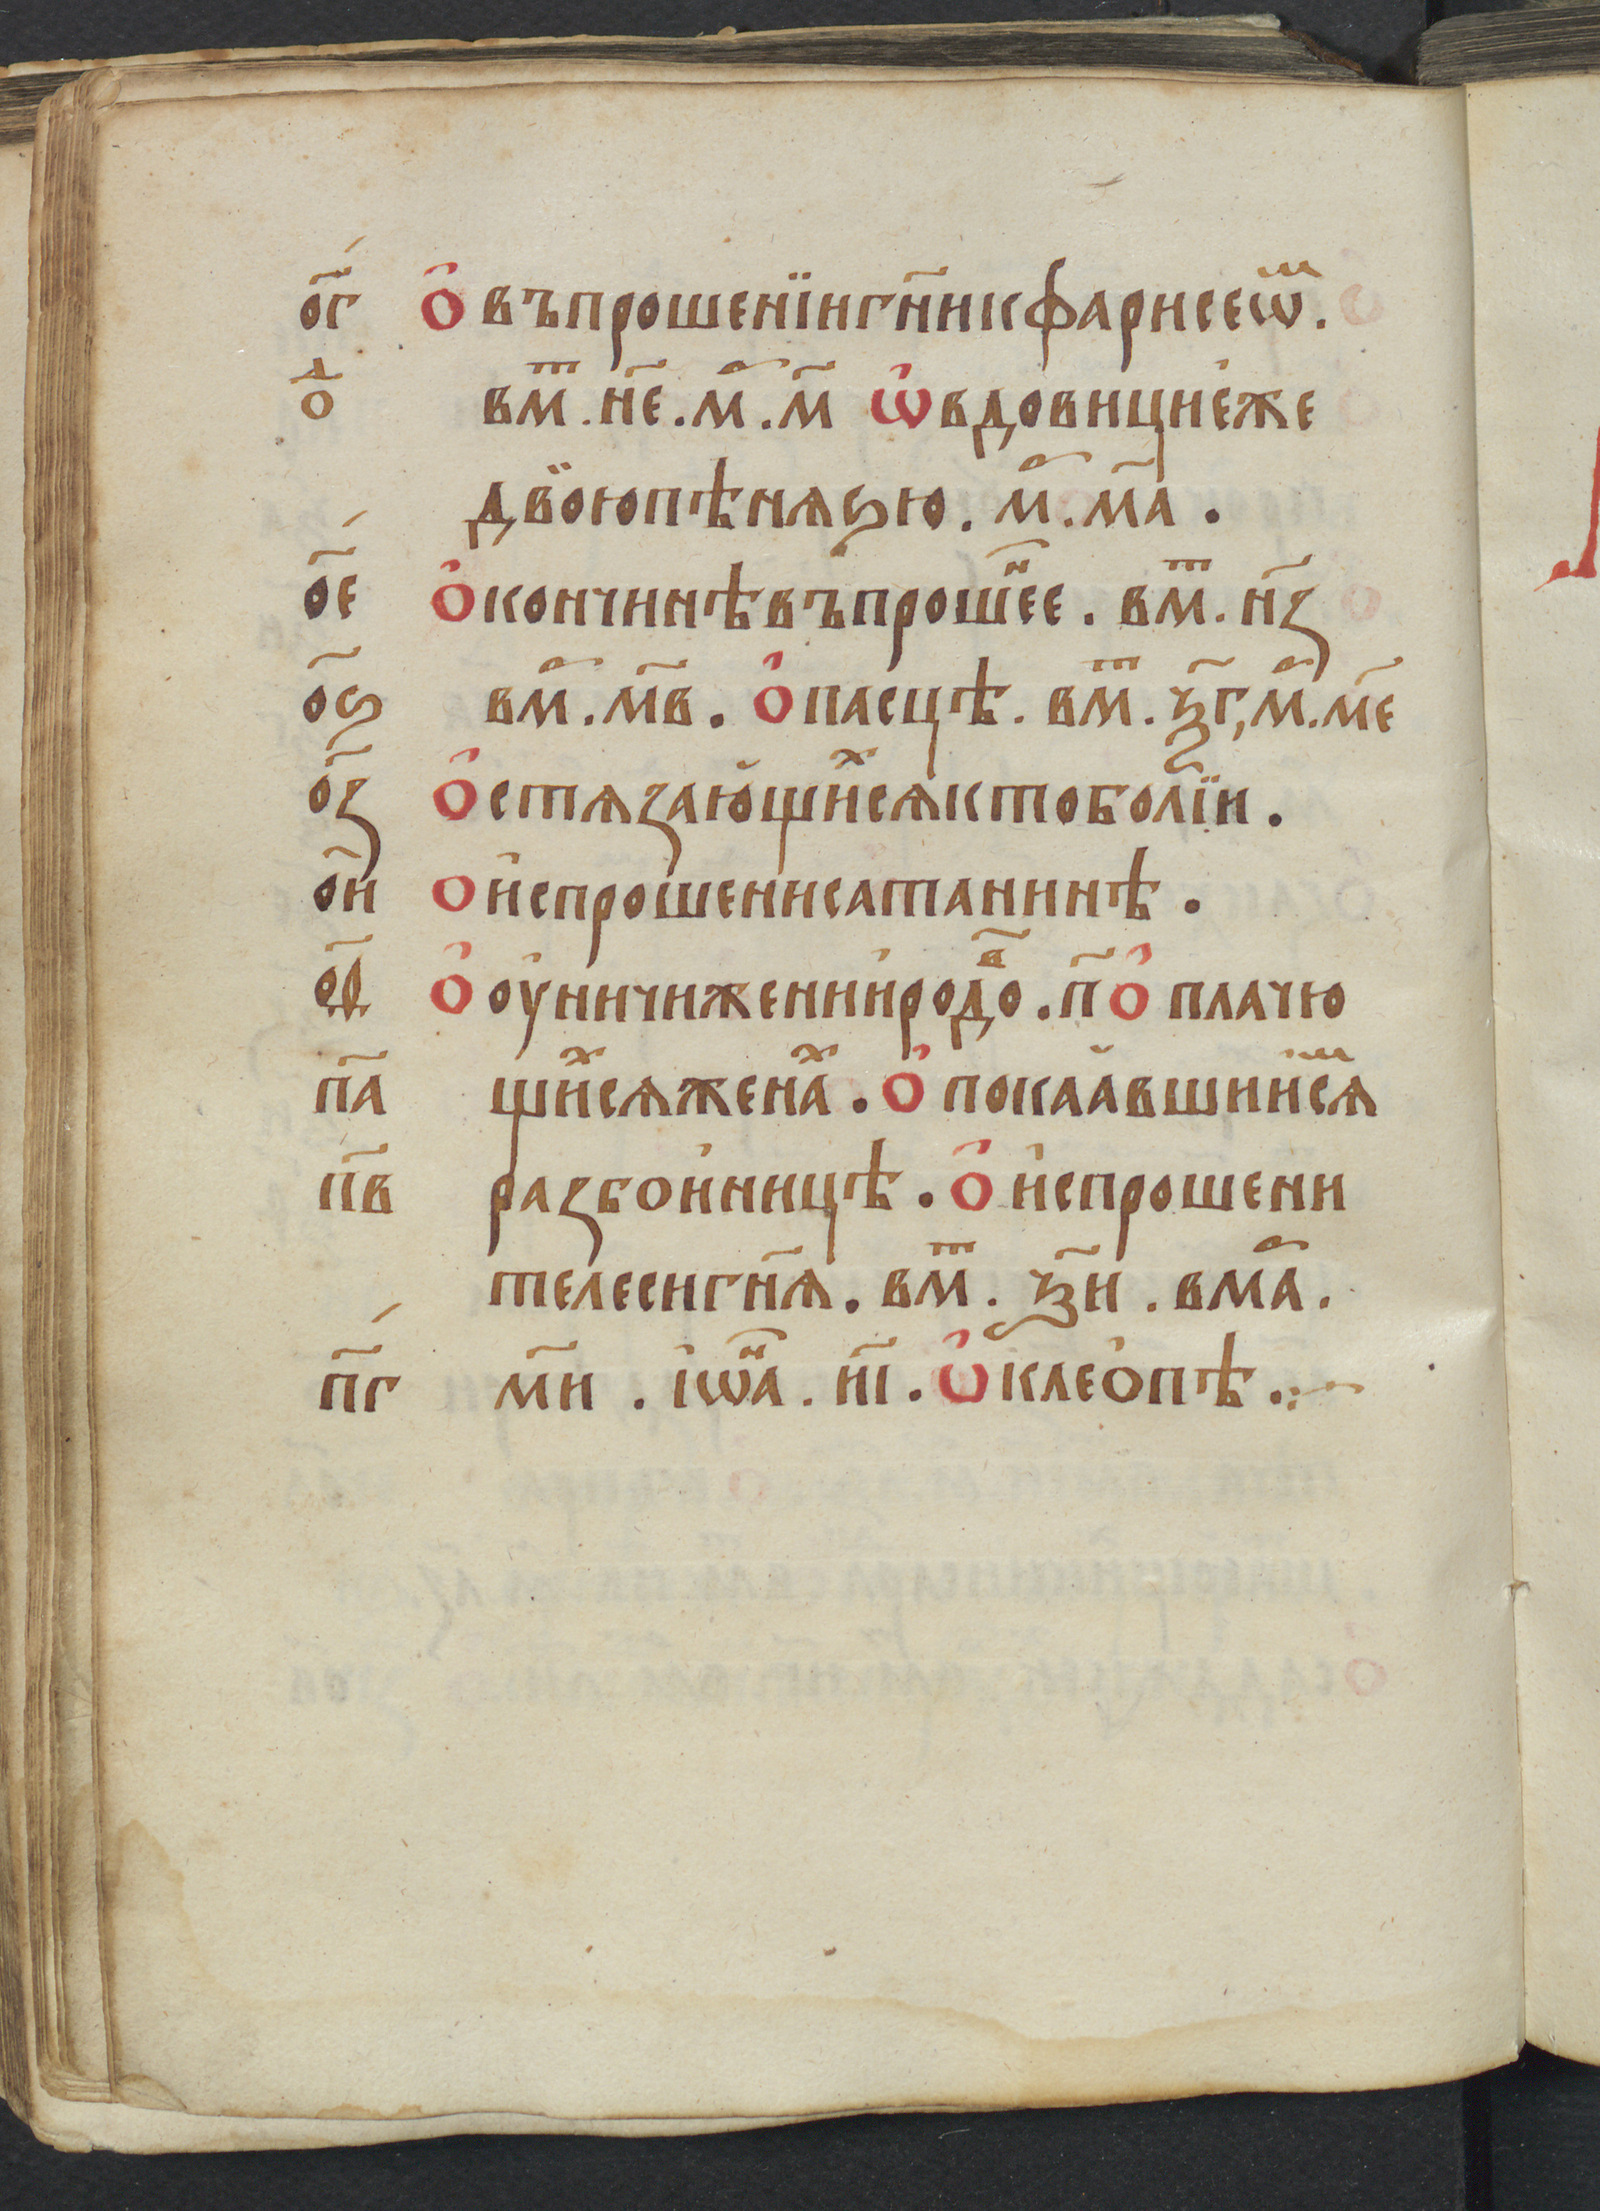 о҃г О въпрошенїи гн҃и к фарисеѡⷨ.
о҃д в мⷴ. н҃е. мⷬ. м҃ Ѡ вдовици еже
двою пѣнязю. мⷬ. м҃а.
о҃е О кончинѣ въпрошⷩ҇ее. в мⷴ. н҃з
о҃ѕ в мⷬ. м҃в. О пасцѣ. в мⷴ. ѯ҃г, мⷬ. м҃е
о҃з О стязающиⷯся кто болїи.
о҃и О испрошени сатанинѣ.
о҃ѳ О оуничижении родоⷡ҇. п҃ О плачю
п҃а щиⷯся женаⷯ. О покаавшииⷨся
п҃в разбоиницѣ. О испрошени
телеси гн҃я. в мⷴ. ѯ҃и. в маⷬ.
п҃г м҃и. іѡⷩ҇а. н҃і. Ѡ клеопѣ.